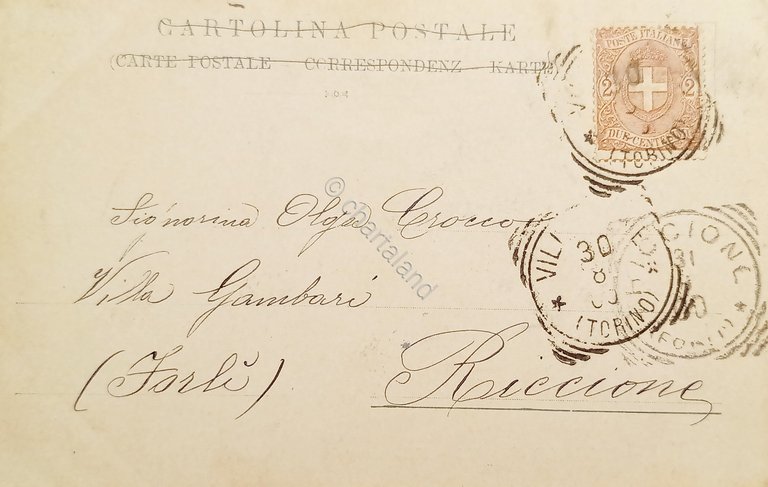 CARTOLINA POSTALE
(CARTE POSTALE CORRESPONDENZ KARTE)
POSTE ITALIANE
2 2
DUE CENTESIMI
(TORINO)
Signorina Olga Crocco
© chartaland
VILLA
30
8
(TORINO)
RICCIONE
31
(FORLI)
Villa Gambari
(Forlì) Riccione